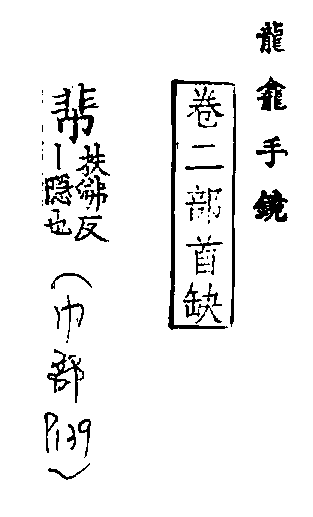 龍龕手鏡
卷二部首缺
扶沸反
丨隠也
（巾部P139）